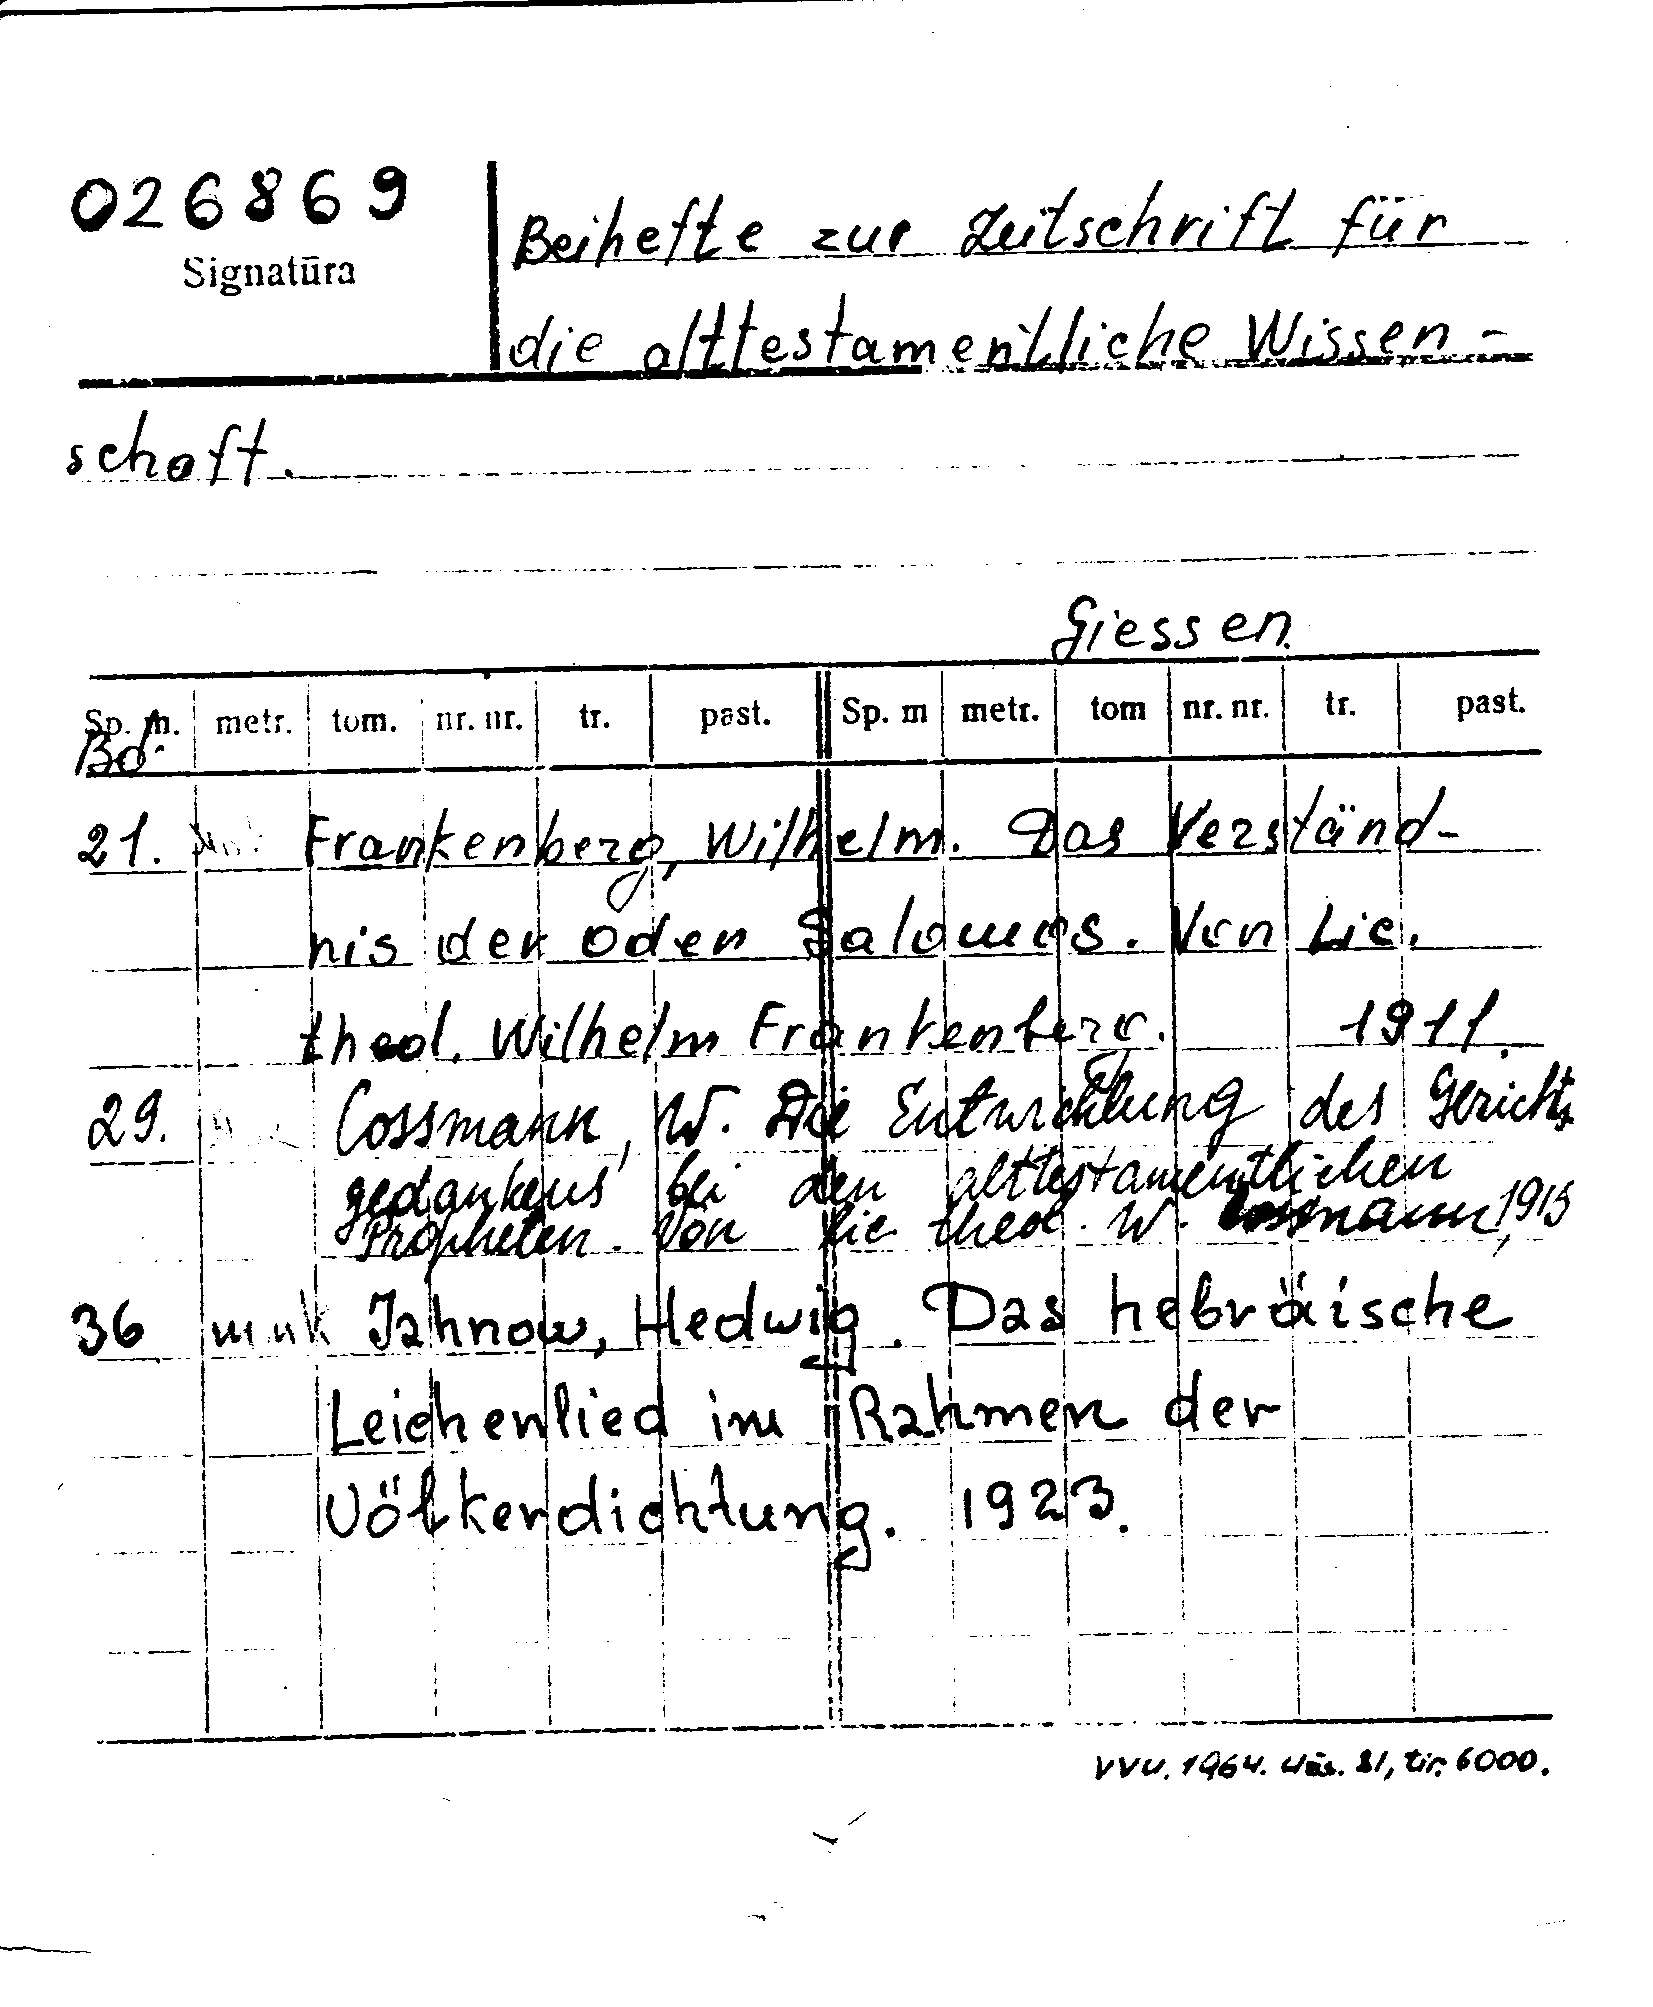 026869
Signatūra
Beihefte zur Zeitschrift für
die alttestamentliche Wissen-
schaft.
Giessen.
Sp. m. metr. tom. nr. nr. tr. past. Sp. m metr. tom nr. nr. tr. past.
Bd.
21. Frankenberg, Wilhelm. Das Verständ-
nis der Oden Salomos. Von Lic.
theol. Wilhelm Frankenberg. 1911.
29. Cossmann, W. Die Entwicklung des Gerichts
gedankens bei den alttestamentlichen
Propheten. Von Lic theol. W. Cossmann, 1915
36 Jahnow, Hedwig. Das hebräische
Leichenlied im Rahmen der
Völkerdichtung. 1923.
VVU. 1964. 81, tir. 6000.